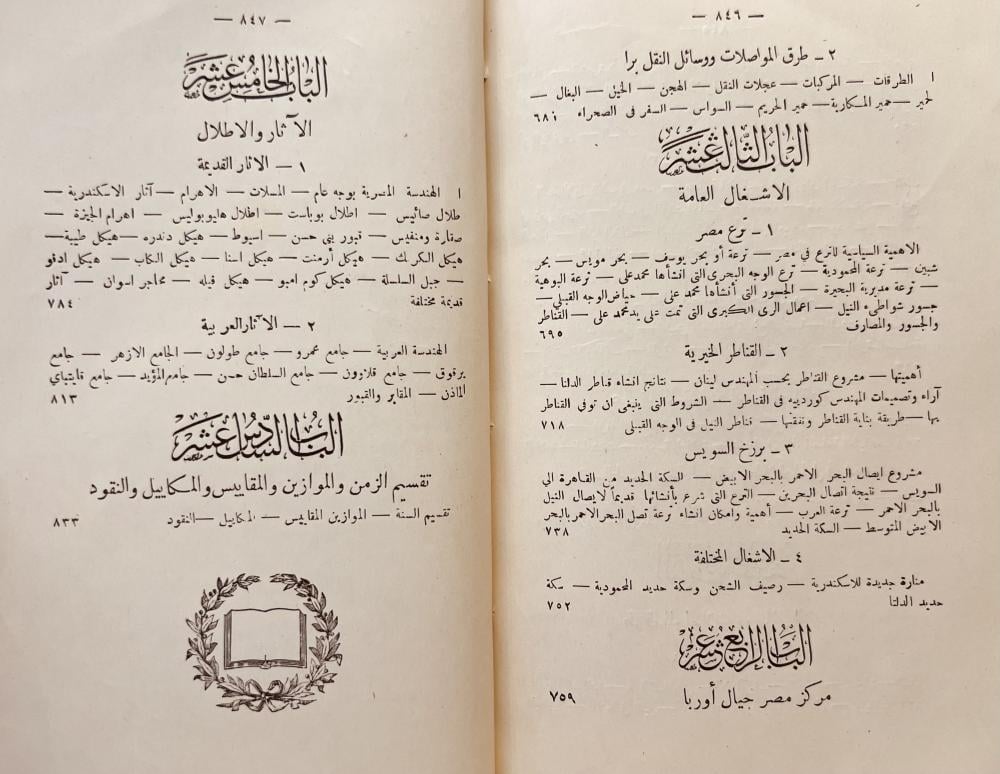 — ٨٤٦ —
٢ ــ طرق المواصلات ووسائل النقل برا
ا الطرقات — المركبات — عجلات النقل — الهجن — الخيل — البغال —
لحمير — حمير المكارية — حمير الحريم — السواس — السفر فى الصحراء ٦٨١
الباب الثالث عشر
الاشغال العامة
١ ــ ترع مصر
الاهمية السياسية للترع في مصر — ترعة أو بحر يوسف — بحر مويس — بحر
شبين — ترعة المحمودية — ترع الوجه البحرى التى انشأها محمد على — ترعة البوهية
— ترعة مديرية البحيرة — الجسور التى أنشأها محمد على — حياض الوجه القبلى —
جسور شواطىء النيل — اعمال الرى الكبرى التى تمت على يد محمد على — القناطر
والجسور والمصارف ٦٩٥
٢ ــ القناطر الخيرية
أهميتها — مشروع القناطر بحسب المهندس لينان — نتائج انشاء قناطر الدلتا —
آراء وتصميمات المهندس كوردييه فى القناطر — الشروط التى ينبغى ان توفى القناطر
بها — طريقة بناية القناطر ونفقتها — قناطر النيل فى الوجه القبلى ٧١٨
٣ ــ برزخ السويس
مشروع ايصال البحر الاحمر بالبحر الابيض — السكة الحديد من القاهرة الى
السويس — نتيجة اتصال البحرين — الترع التى شرع بأنشائها قديماً لايصال النيل
بالبحر الاحمر — ترعة العرب — أهمية وامكان انشاء ترعة تصل البحر الاحمر بالبحر
الابيض المتوسط — السكة الحديد ٧٣٨
٤ ــ الاشغال المختلفة
منارة جديدة للاسكندرية — رصيف الشحن وسكة حديد المحمودية — سكة
حديد الدلتا ٧٥٢
الباب الرابع عشر
مركز مصر حيال أوربا ٧٥٩
— ٨٤٧ —
الباب الخامس عشر
الآثار والاطلال
١ ــ الاثار القديمة
ا الهندسة المصرية بوجه عام — المسلات — الاهرام — آثار الاسكندرية —
طلال صائيس — اطلال بوباست — اطلال هليوبوليس — اهرام الجيزة —
صقارة ومنفيس — قبور بنى حسن — اسيوط — هيكل دندره — هيكل طيبة —
هيكل الكرنك — هيكل أرمنت — هيكل اسنا — هيكل الكاب — هيكل ادفو
— جبل السلسلة — هيكل كوم امبو — هيكل فيله — محاجر اسوان — آثار
قديمة مختلفة ٧٨٤
٢ ــ الآثار العربية
الهندسة العربية — جامع عمرو — جامع طولون — الجامع الازهر — جامع
برقوق — جامع قلاوون — جامع السلطان حسن — جامع المؤيد — جامع قايتباي
المآذن — المقابر والقبور ٨١٣
الباب السادس عشر
تقسيم الزمن والموازين والمقاييس والمكاييل والنقود
تقسيم السنة — الموازين المقاييس — المكاييل — النقود ٨٣٣